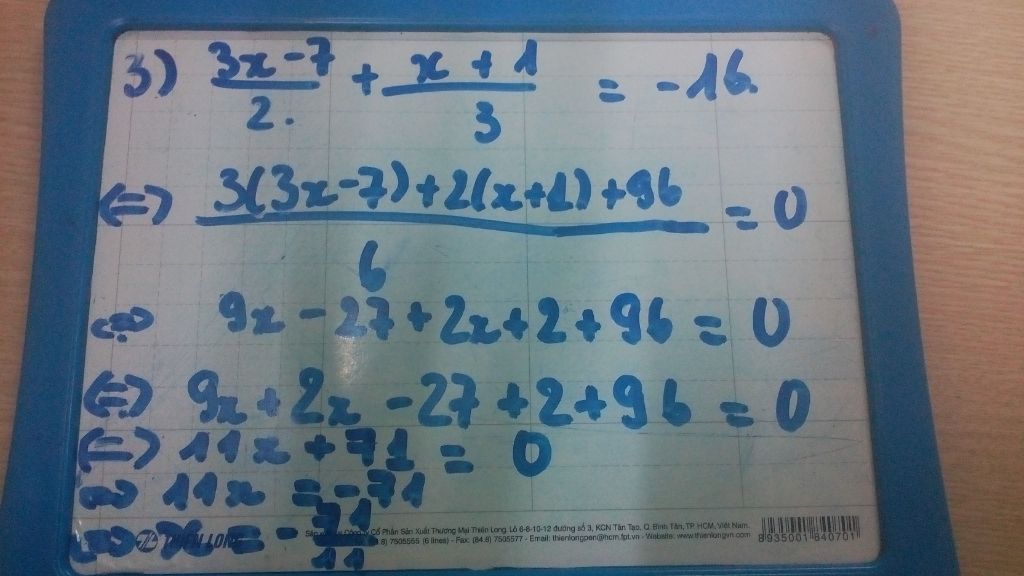 3) \frac{3x-7}{2.} + \frac{x+1}{3} = -16.
(=) \frac{3(3x-7)+2(x+1)+96}{6} = 0
<=> 9x - 27 + 2x + 2 + 96 = 0
(=) 9x + 2x - 27 + 2 + 96 = 0
(=) 11x + 71 = 0
<=> 11x = -71
<=> x = -\frac{71}{11}
THIEN LONG
Cổ Phần Sản Xuất Thương Mại Thiên Long. Lô 6-8-10-12 đường số 3, KCN Tân Tạo, Q. Bình Tân, TP. HCM, Việt Nam.
8) 7505555 (6 lines) - Fax: (84.8) 7505577 - Email: thienlongpen@hcm.fpt.vn - Website: www.thienlongvn.com
8935001 840701